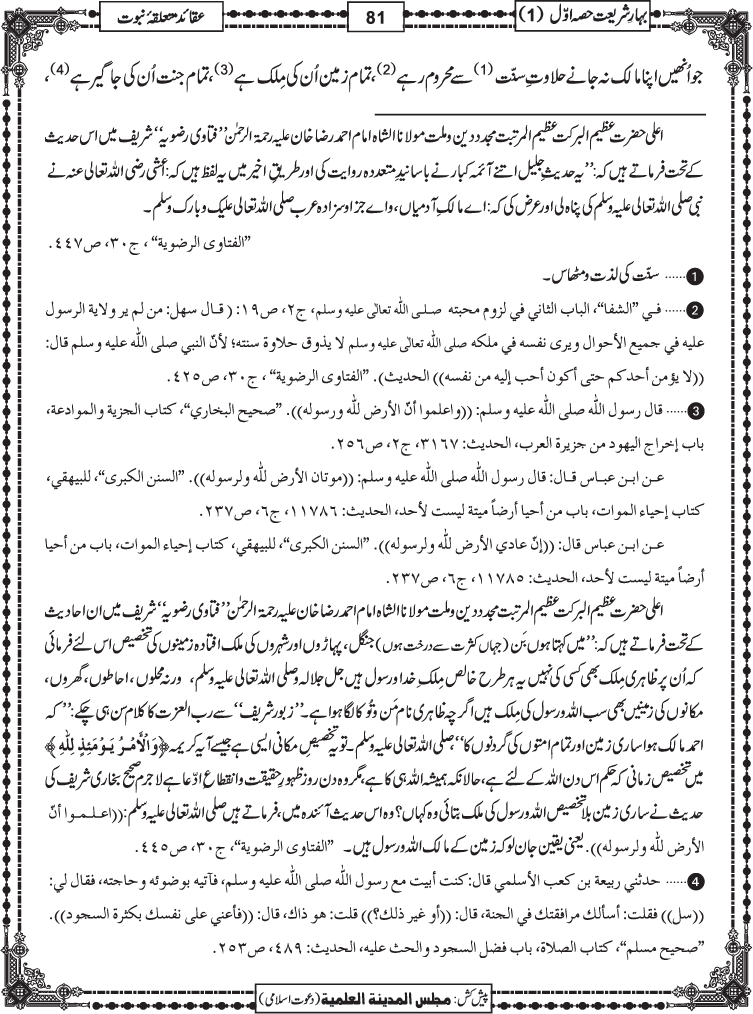 بہارِ شریعت حصہ اوّل (1)
81
عقائد متعلقۂ نبوت
جو اُنھیں اپنا مالک نہ جانے حلاوتِ سنّت (1) سے محروم رہے (2)، تمام زمین اُن کی مِلک ہے (3)، تمام جنت اُن کی جاگیر ہے (4)،
اعلی حضرت عظیم البرکت عظیم المرتبت مجدد دین وملت مولانا الشاہ امام احمد رضا خان علیہ رحمۃ الرحمٰن ’’فتاوی رضویہ‘‘ شریف میں اس حدیث
کے تحت فرماتے ہیں کہ: ’’یہ حدیثِ جلیل اتنے آئمہ کبار نے باسانیدِ متعددہ روایت کی اور طریقِ اخیر میں یہ لفظ ہیں کہ: اَعْشی رضی اللہ تعالی عنہ نے
نبی صلی اللہ تعالی علیہ وسلم کی پناہ لی اور عرض کی کہ: اے مالکِ آدمیاں، واے جزا وسزا دہ عرب صلی اللہ تعالی علیک وبارک وسلم۔
”الفتاوى الرضوية“، ج٣٠، ص٤٤٧.
1 ...... سنّت کی لذت ومٹھاس۔
2 ...... في ”الشفا“، الباب الثاني في لزوم محبته صلى الله تعالى عليه وسلم، ج٢، ص١٩: (قال سهل: من لم ير ولاية الرسول
عليه في جميع الأحوال ويرى نفسه في ملكه صلى الله تعالى عليه وسلم لا يذوق حلاوة سنته؛ لأنّ النبي صلى الله عليه وسلم قال:
((لا يؤمن أحدكم حتى أكون أحب إليه من نفسه)) الحديث). ”الفتاوى الرضوية“، ج٣٠، ص٤٢٥.
3 ...... قال رسول الله صلى الله عليه وسلم: ((واعلموا أنّ الأرض لله ورسوله)). ”صحيح البخاري“، كتاب الجزية والموادعة،
باب إخراج اليهود من جزيرة العرب، الحديث: ٣١٦٧، ج٢، ص٢٥٦.
عن ابن عباس قال: قال رسول الله صلى الله عليه وسلم: ((موتان الأرض لله ولرسوله)). ”السنن الكبرى“، للبيهقي،
كتاب إحياء الموات، باب من أحيا أرضاً ميتة ليست لأحد، الحديث: ١١٧٨٦، ج٦، ص٢٣٧.
عن ابن عباس قال: ((إنّ عادي الأرض لله ولرسوله)). ”السنن الكبرى“، للبيهقي، كتاب إحياء الموات، باب من أحيا
أرضاً ميتة ليست لأحد، الحديث: ١١٧٨٥، ج٦، ص٢٣٧.
اعلی حضرت عظیم البرکت عظیم المرتبت مجدد دین وملت مولانا الشاہ امام احمد رضا خان علیہ رحمۃ الرحمٰن ’’فتاوی رضویہ‘‘ شریف میں ان احادیث
کے تحت فرماتے ہیں کہ: ’’میں کہتا ہوں بَن (جہاں کثرت سے درخت ہوں) جنگل، پہاڑوں اور شہروں کی ملک افتادہ زمینوں کی تخصیص اس لئے فرمائی
کہ اُن پر ظاہری مِلک بھی کسی کی نہیں یہ ہر طرح خالص مِلکِ خدا ورسول ہیں جل جلالہ وصلی اللہ تعالی علیہ وسلم، ورنہ محلوں، احاطوں، گھروں،
مکانوں کی زمینیں بھی سب اللہ ورسول کی مِلک ہیں اگرچہ ظاہری نام مَن وتُو کا لگا ہوا ہے۔ ’’زبور شریف‘‘ سے رب العزت کا کلام سن ہی چکے: ’’کہ
احمد مالک ہوا ساری زمین اور تمام امتوں کی گردنوں کا‘‘، صلی اللہ تعالی علیہ وسلم۔ تو یہ تخصیصِ مکانی ایسی ہے جیسے آیہ کریمہ ﴿وَالْاَمْرُ یَوْمَئِذٍ لِلّٰهِ﴾
میں تخصیصِ زمانی کہ حکم اس دن اللہ کے لئے ہے، حالانکہ ہمیشہ اللہ ہی کا ہے، مگر وہ دن روز ظہورِ حقیقت وانقطاعِ ادّعا ہے لا جرم صحیح بخاری شریف کی
حدیث نے ساری زمین بلا تخصیص اللہ ورسول کی ملک بتائی وہ کہاں؟ وہ اس حدیث آئندہ میں، فرماتے ہیں صلی اللہ تعالی علیہ وسلم: ((اعلموا أنّ
الأرض لله ولرسوله)). یعنی یقین جان لو کہ زمین کے مالک اللہ ورسول ہیں۔ ”الفتاوى الرضوية“، ج٣٠، ص٤٤٥.
4 ...... حدثني ربيعة بن كعب الأسلمي قال: كنت أبيت مع رسول الله صلى الله عليه وسلم، فآتيه بوضوئه وحاجته، فقال لي:
((سل)) فقلت: أسألك مرافقتك في الجنة، قال: ((أو غير ذلك؟)) قلت: هو ذاك، قال: ((فأعني على نفسك بكثرة السجود)).
”صحيح مسلم“، كتاب الصلاة، باب فضل السجود والحث عليه، الحديث: ٤٨٩، ص٢٥٣.
پیش کش: مجلس المدینة العلمیة (دعوت اسلامی)